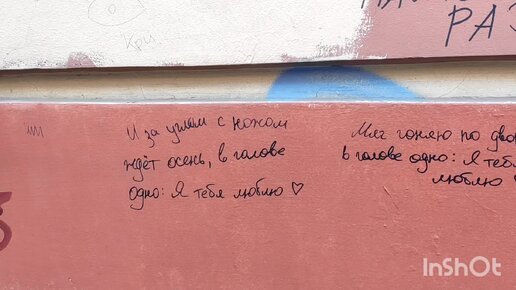 Кри
РАЗ
И за углом с ножом
ждёт осень, в голове
одно: Я тебя люблю ♡
Мяч гоняю по дво
в голове одно: Я тебя
люблю
InShOt